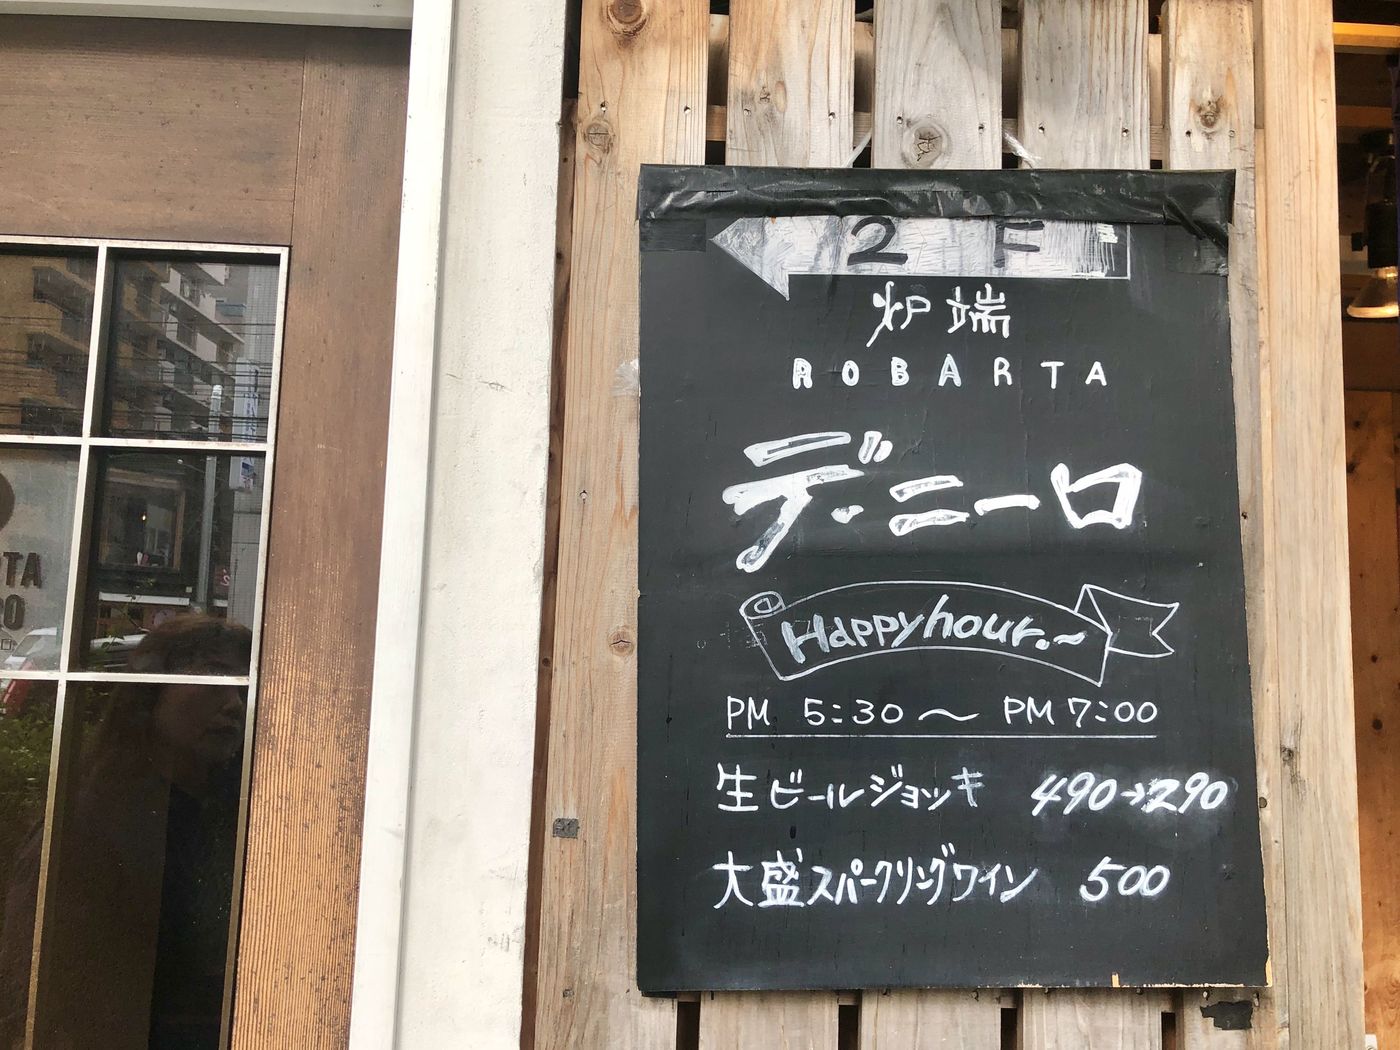 2 F
炉端
ROBARTA
デ・ニーロ
Happy hour.~
PM 5:30 〜 PM 7:00
生ビールジョッキ 490→290
大盛スパークリングワイン 500